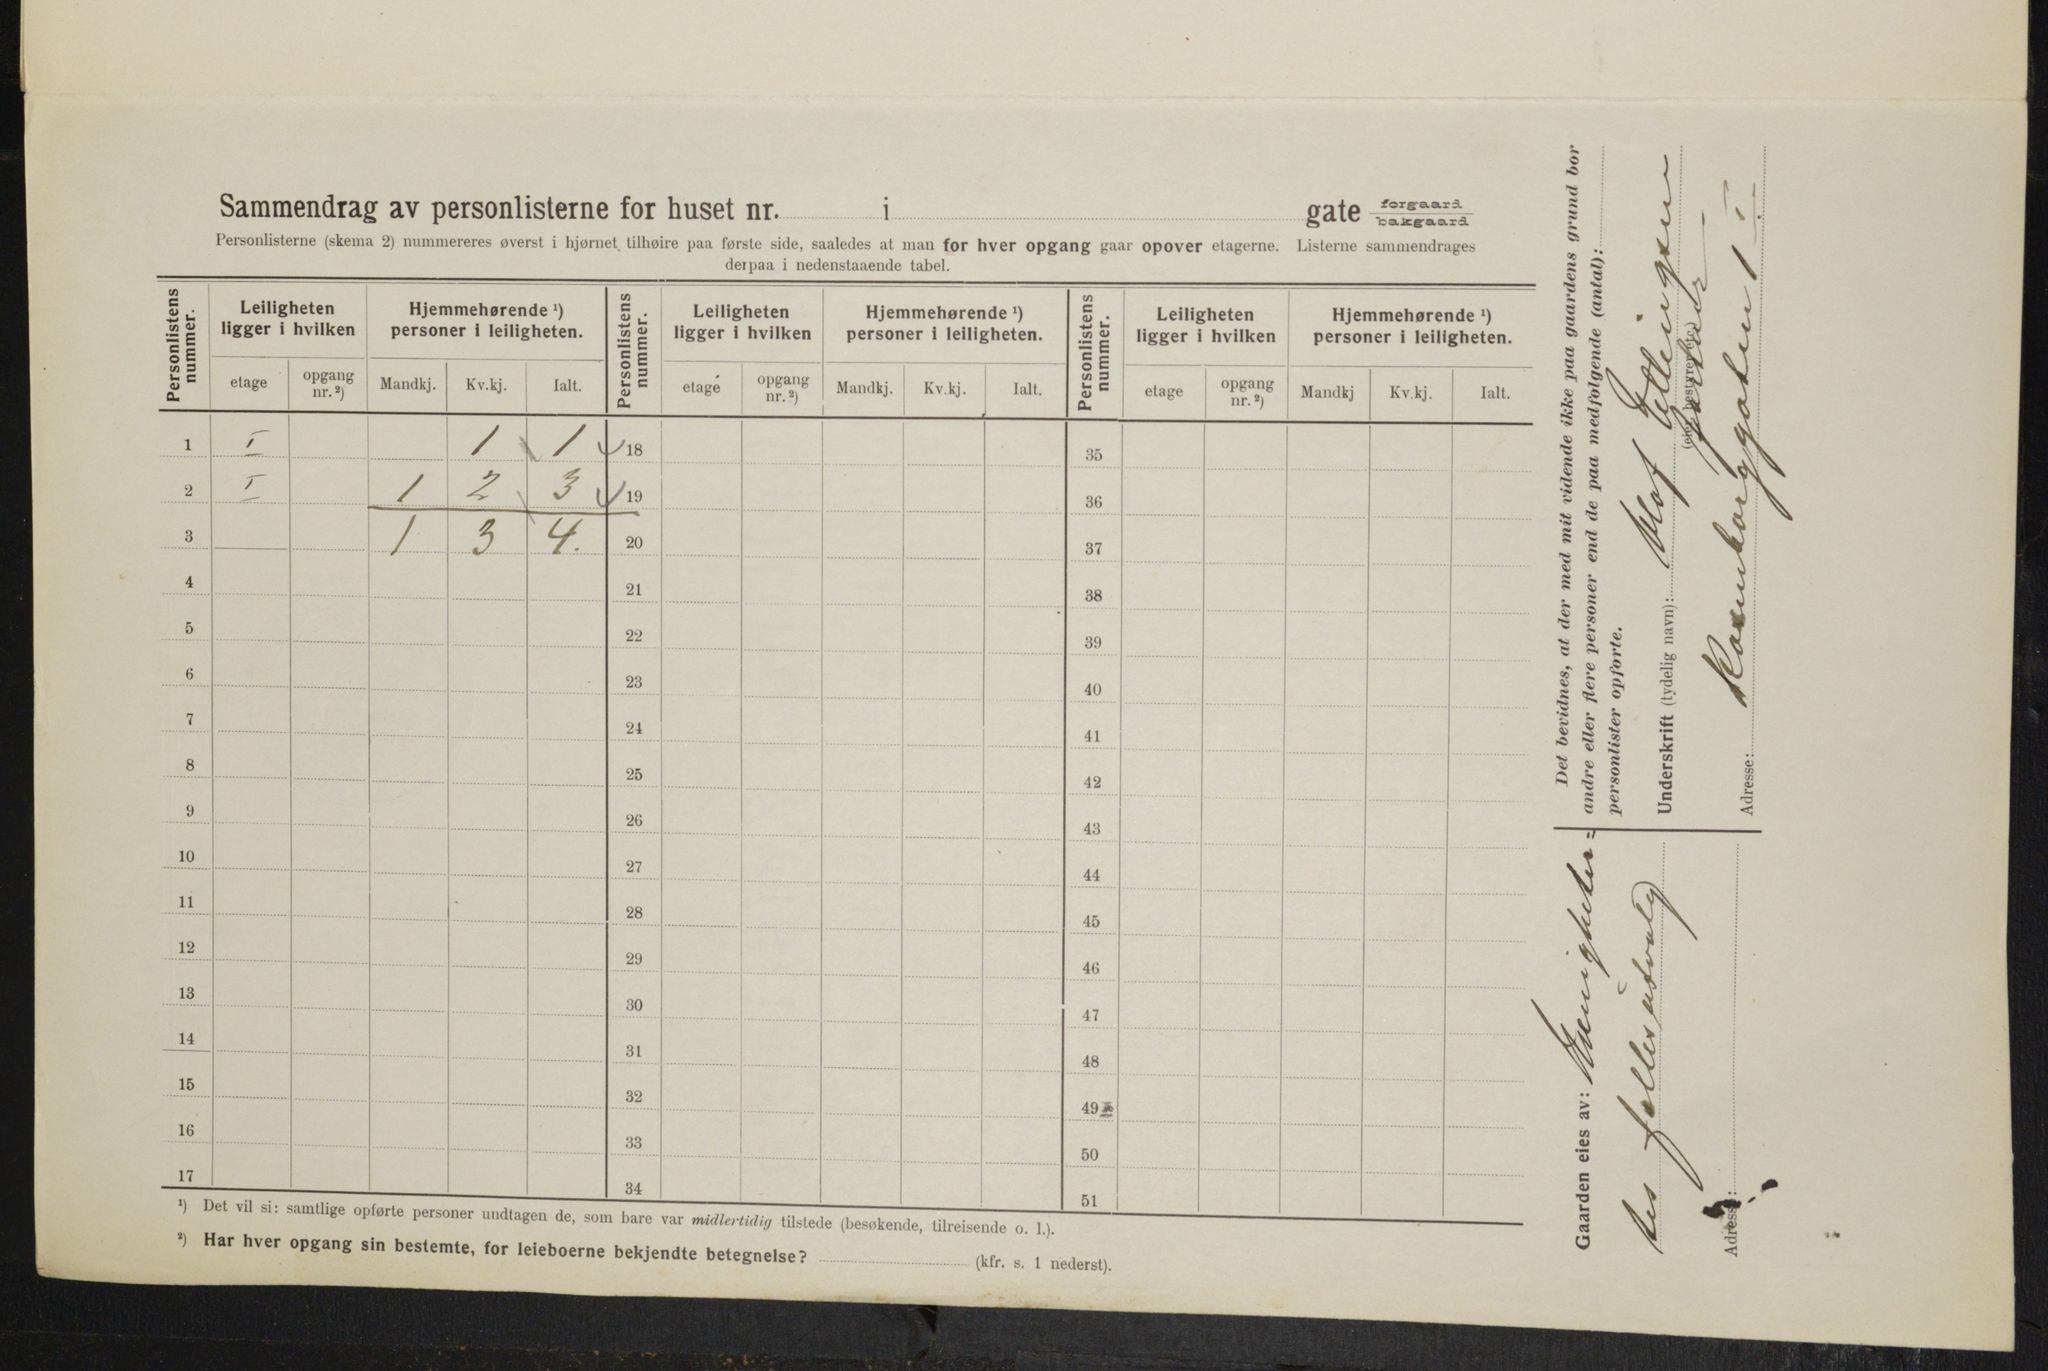 Sammendrag av personlisterne for huset nr. i gate forgaard bakgaard
Personlisterne (skema 2) nummereres øverst i hjørnet tilhøire paa første side, saaledes at man for hver opgang gaar opover etagerne. Listerne sammendrages
derpaa i nedenstaaende tabel.
Personlistens nummer. Leiligheten ligger i hvilken Hjemmehørende ¹) personer i leiligheten. Personlistens nummer. Leiligheten ligger i hvilken Hjemmehørende ¹) personer i leiligheten. Personlistens nummer. Leiligheten ligger i hvilken Hjemmehørende ¹) personer i leiligheten.
etage opgang nr. ²) Mandkj. Kv.kj. Ialt. etage opgang nr. ²) Mandkj. Kv.kj. Ialt. etage opgang nr. ²) Mandkj Kv.kj. Ialt.
1 I 1 1 18 35
2 I 1 2 3 19 36
3 1 3 4. 20 37
4 21 38
5 22 39
6 23 40
7 24 41
8 25 42
9 26 43
10 27 44
11 28 45
12 29 46
13 30 47
14 31 48
15 32 49
16 33 50
17 34 51
¹) Det vil si: samtlige opførte personer undtagen de, som bare var midlertidig tilstede (besøkende, tilreisende o. l.).
²) Har hver opgang sin bestemte, for leieboerne bekjendte betegnelse? (kfr. s. 1 nederst).
Det bevidnes, at der med mit vidende ikke paa gaardens grund bor
andre eller flere personer end de paa medfølgende (antal):
personlister opførte.
Underskrift (tydelig navn): Olof Ellingsen
(eier, bestyrer etc.)
Adresse: Rosenborggaten 1 I
Gaarden eies av: Menigheter=
nes fellesutvalg
Adresse: